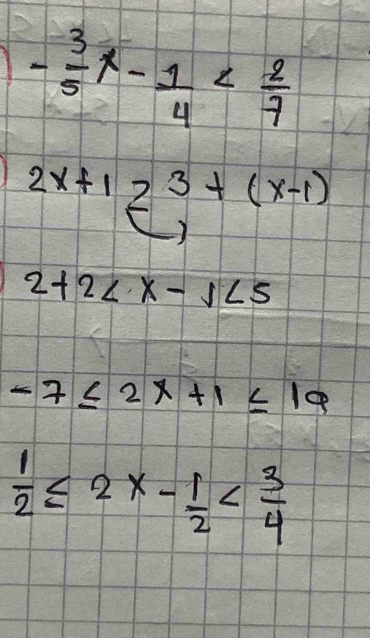 -3/5 x - 1/4 < 2/7
2x+1 ≥ 3 + (x-1)
2+2 < x - 1 < 5
-7 ≤ 2x + 1 ≤ 19
1/2 ≤ 2x - 1/2 < 3/4